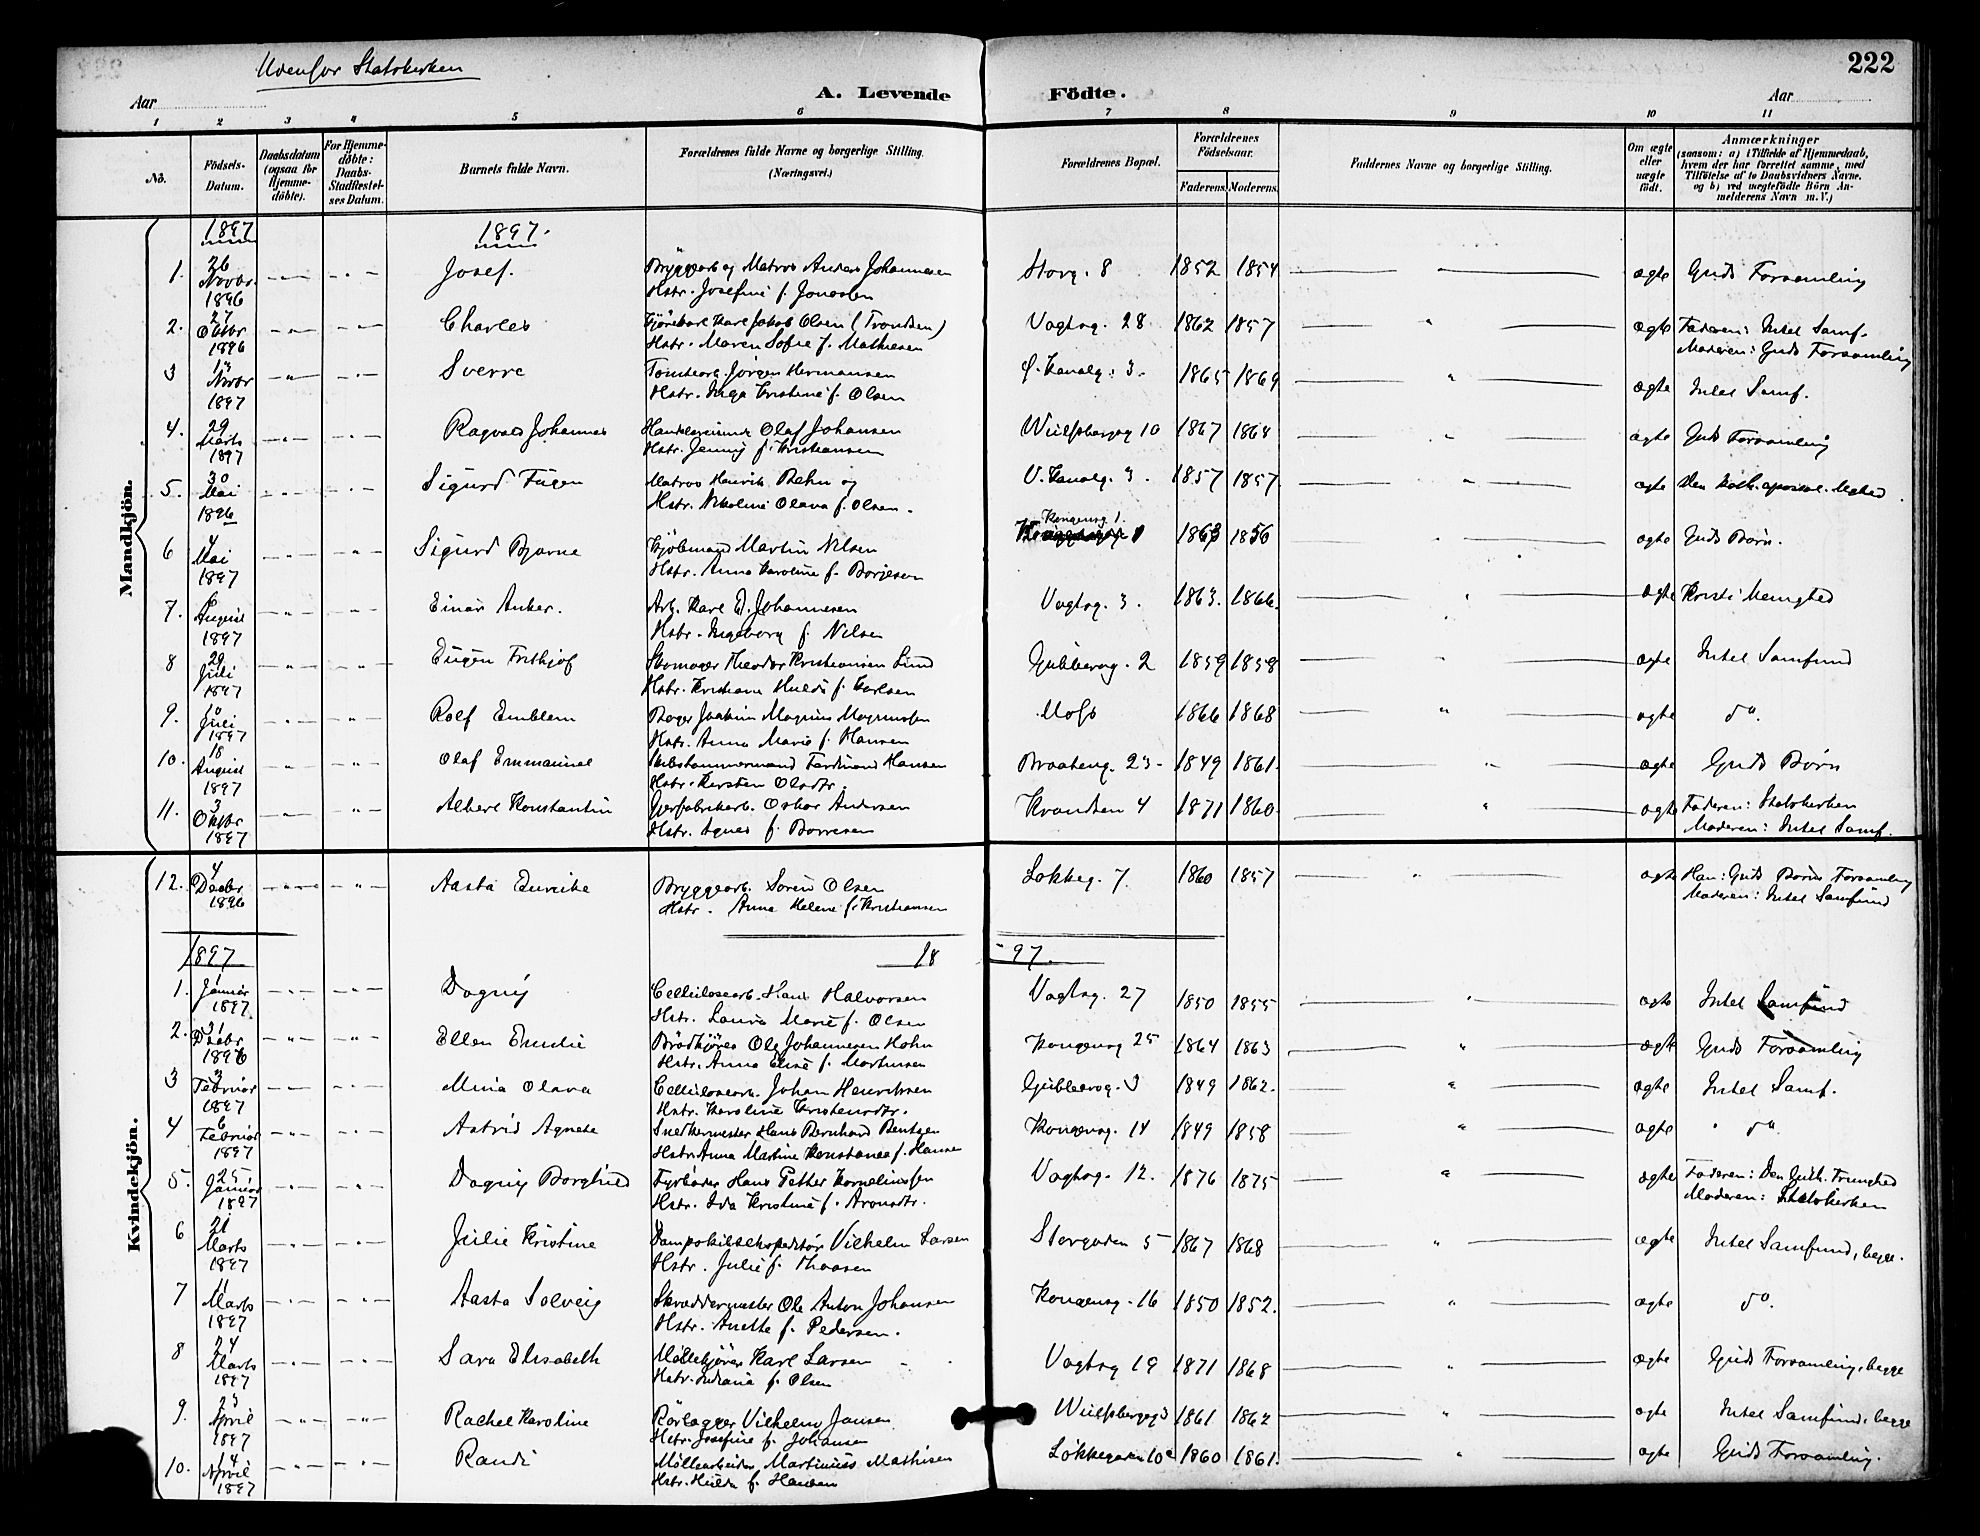 Udenfor Statskirken
222
Aar
A. Levende Födte.
Aar
1 2 3 4 5 6 7 8 9 10 11
No.
Födsels-Datum.
Daabsdatum (ogsaa for Hjemme-døbte).
For Hjemme-døbte: Daabs-Stadfæstel-ses Datum.
Barnets fulde Navn.
Forældrenes fulde Navne og borgerlige Stilling.
(Næringsvei.)
Forældrenes Bopæl.
Forældrenes Födselsaar.
Faderens. Moderens.
Faddernes Navne og borgerlige Stilling.
Om ægte eller uægte født.
Anmærkninger
(saasom: a) i Tilfælde af Hjemmedaab, hvem der har forrettet samme, med Tilföielse af to Daabsvidners Navne. og b) ved uægtefödte Börn An-melderens Navn m.V.)
Mandkjön.
1897 1897.
1. 26 Novbr. 1896 Josef. Bryggearb og Matros Anders Johannesen Storg. 8 1852 1854 ægte Guds Forsamling
Hstr. Josefine f. Jonassen
2. 27 Oktbr 1896 Charles Kjørekarl Karl Jakob Olsen (Trondsen) Vogtsg. 28 1862 1857 ægte Faderen: Intet Samf.
Hstr. Maren Sofie f. Mathiesen Moderen: Guds Forsamling
3 Novbr 1897 Sverre Tomtearb. Jørgen Hermansen Ø. Kanalg. 3. 1865 1869 ægte Intet Samf.
Hstr. Inga Kristine f. Olsen
4. 29 Marts 1897 Ragvald Johannes Olaf Johansen Wulfsbergsg 10 1867 1864 ægte Guds Forsamling
Hstr. Jenny f. Kristiansen
5. 30 Mai 1896 Sigurd Eugen Matros Henrik Behn og V. Kanalg. 3. 1857 1857. ægte Den kath. apostol. Mghed.
Hstr. Nikoline Olava f. Olsen.
6 4 Mai 1897 Sigurd Bjarne Kjøbmand Martin Nilsen Kongensg 1. 1863 1856 ægte Guds Børn.
Hstr. Anna Karoline f. Borjesen
7. 6 August 1897 Einar Anker. Arb. Karl E. Johannesen Vogtsg. 3. 1863. 1866. ægte Kristi Menighed
Hstr. Ingeborg f. Nilsen
8 29 Juli 1897 Eugen Frithjof Skomager Theodor Kristiansen Lund Gubberog. 2 1859 1858 ægte Intet Samfund
Hstr. Kristiane Hulda f. Karlsen
9. 10 Juli 1897 Rolf Emblem Bager Joakim Magnus Magnussen Moss 1866 1868 ægte do.
Hstr. Anna Marie f. Hansen
10. 18 August 1897 Olaf Emmanuel Skibstømmermand Ferdinand Hansen Braateng. 23 1849 1861. ægte Guds Børn
Hstr. Kirsten Olsdtr.
11. 3 Oktbr 1897 Albert Konstantin Gjærfabrikarb. Oskar Andersen Kransen 4 1871 1860 ægte Faderen: Statskirken
Hstr. Agnes f. Borresen Moderen: Intet Samf.
Kvindekjön.
12. 4 Decbr 1896 Aasta Enrike Bryggearb. Søren Olsen Løkkeg. 7. 1860 1857 ægte Han: Guds Børns Forsamling
Hstr. Anna Helene f. Kristiansen Moderen: Intet Samfund
1897 18 - 97.
1. 1 Januar 1897 Dagny Cellulosearb. Hans Halvorsen Vogtsg. 27 1850 1855 ægte Intet Samfund
Hstr. Laura Marie f. Olsen
2. 31 Decbr 1896 Ellen Emilie Brødkjører Ole Johannesen Holm Kongensg 25 1864 1863 ægte Guds Forsamling
Hstr. Anna Elise f. Martinsen
3 3 Februar 1897 Mina Olava Cellulosearb. Johan Henriksen Gubberog. 3 1849 1862. ægte Intet Samf.
Hstr. Karoline Kristensdtr.
4 6 Februar 1897 Astrid Agnete Snedkermester Hans Bernhard Bentzen Kongensg. 14 1849 1858 ægte do.
Hstr. Anna Martine Konstance f. Hansen
5. 25 Januar 1897 Dagny Borghild Fyrbøder Hans Petter Kornelinssen Vogtsg. 12. 1876 1875 ægte Faderen: Den luth. Frimghed
Hstr. Ida Kristine f. Aronsdtr. Moderen: Statskirken
6 21 Marts 1897 Julie Kristine Dampskibsekspeditør Vilhelm Larsen Storgaden 5 1867 1868 ægte Intet Samfund, begge.
Hstr. Julie f. Thoresen
7 11 Marts 1897 Aasta Solveig Skræddermester Ole Anton Johansen Kongensg. 16 1850 1852. ægte do.
Hstr. Anette f. Pedersen.
8 24 Marts 1897 Sara Elisabeth Møllekjører Karl Larsen Vogtsg 19 1871 1868 ægte Guds Forsamling, begge
Hstr. Indiana f. Olsen
9. 23 April 1897 Rachel Karoline Rørlægger Vilhelm Jansen Wulfsbergsg 3 1861 1862 ægte Intet Samfund, begge
Hstr. Josefine f. Johansen
10. 14 April 1897 Randi Møllearbeider Martinius Mathisen Løkkegaden 10a 1860 1861. ægte Guds Forsamling.
Hstr. Hulda f. Hansen